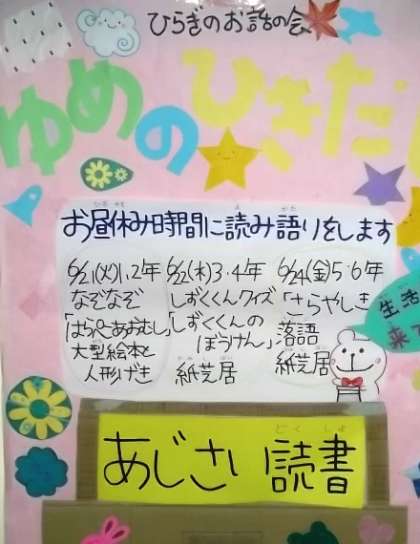 ひらぎのお話の会
ゆめのひきだし
お昼休み時間に読み語りをします
6/21(火)1、2年
なぞなぞ
「はらぺこあおむし」
大型絵本と
人形げき
6/22(木)3・4年
しずくくんクイズ
「しずくくんの
ぼうけん」
紙芝居
6/24(金)5・6年
「さらやしき」
落語
紙芝居
生活
来
あじさい読書